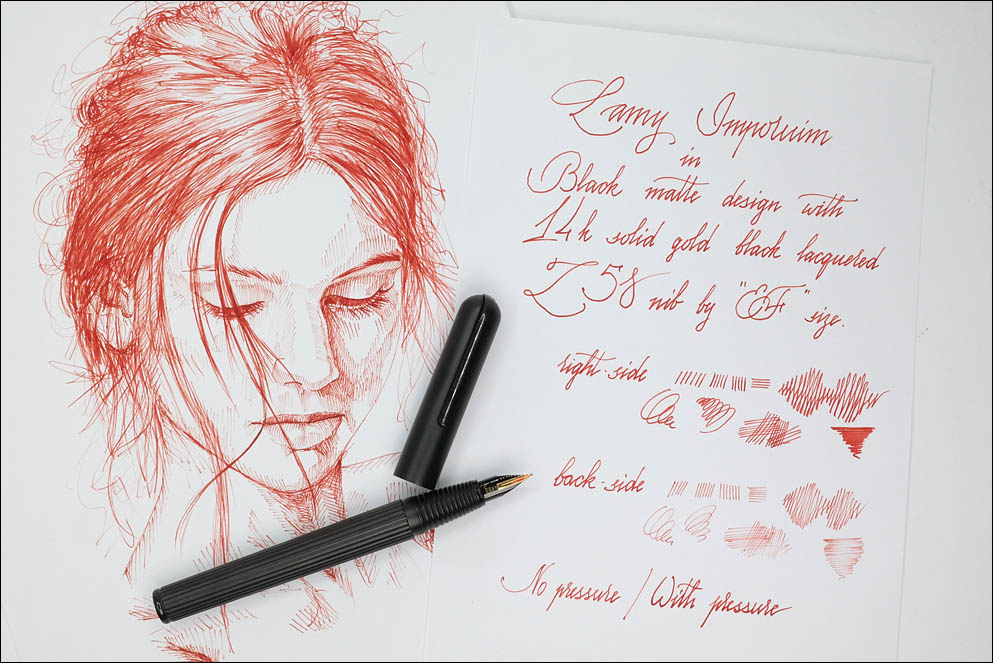 Lamy Imporuim
in
Black matte design with
14k solid gold black lacquered
Z58 nib by "EF" size.
right-side
back-side
No pressure / With pressure